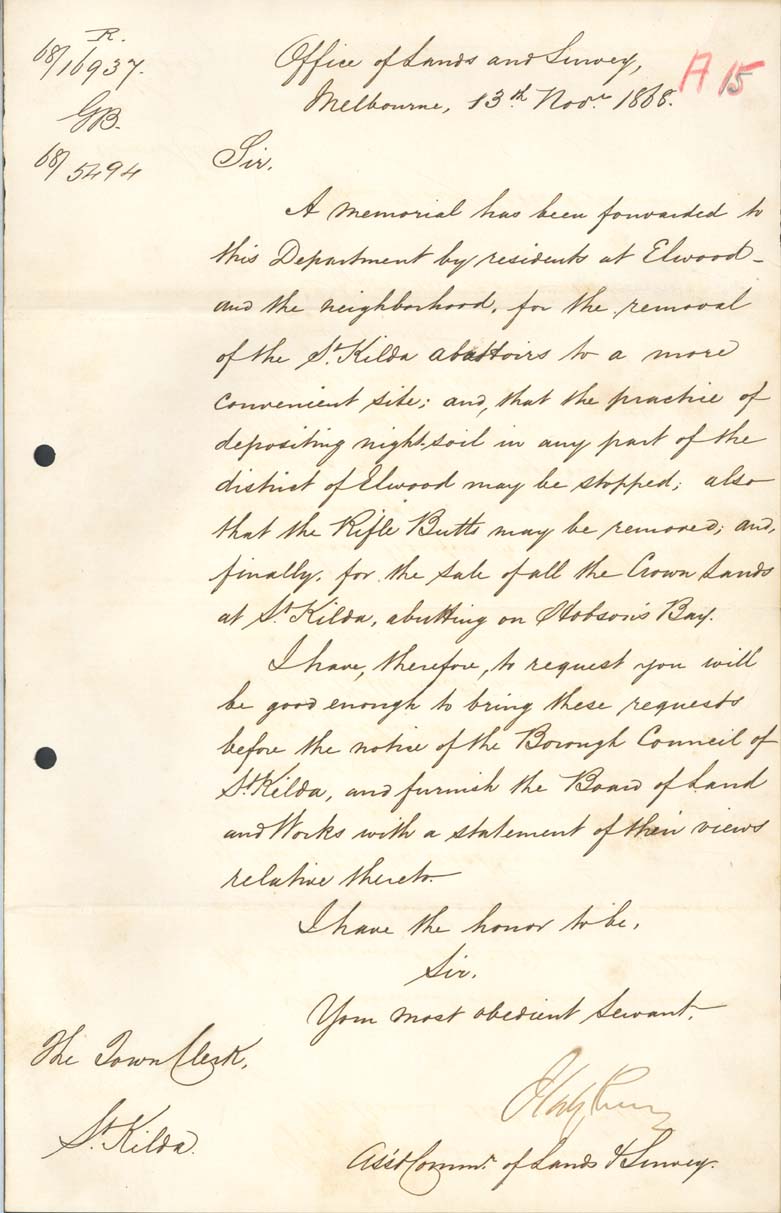 R.
68/16937.
GB.
68/5494
A 15
Office of Lands and Survey,
Melbourne, 13th Novr. 1868.
Sir.
A memorial has been forwarded to
this Department by residents at Elwood
and the neighborhood, for the removal
of the St. Kilda abattoirs to a more
convenient site; and, that the practice of
depositing night-soil in any part of the
district of Elwood may be stopped; also
that the Rifle Butts may be removed; and,
finally, for the sale of all the Crown Lands
at St. Kilda, abutting on Hobson's Bay.
I have, therefore, to request you will
be good enough to bring these requests
before the notice of the Borough Council of
St. Kilda, and furnish the Board of Land
and Works with a statement of their views
relative thereto.
I have the honor to be,
Sir.
Your most obedient Servant.
The Town Clerk,
St. Kilda.
Asst Commr. of Lands & Survey.